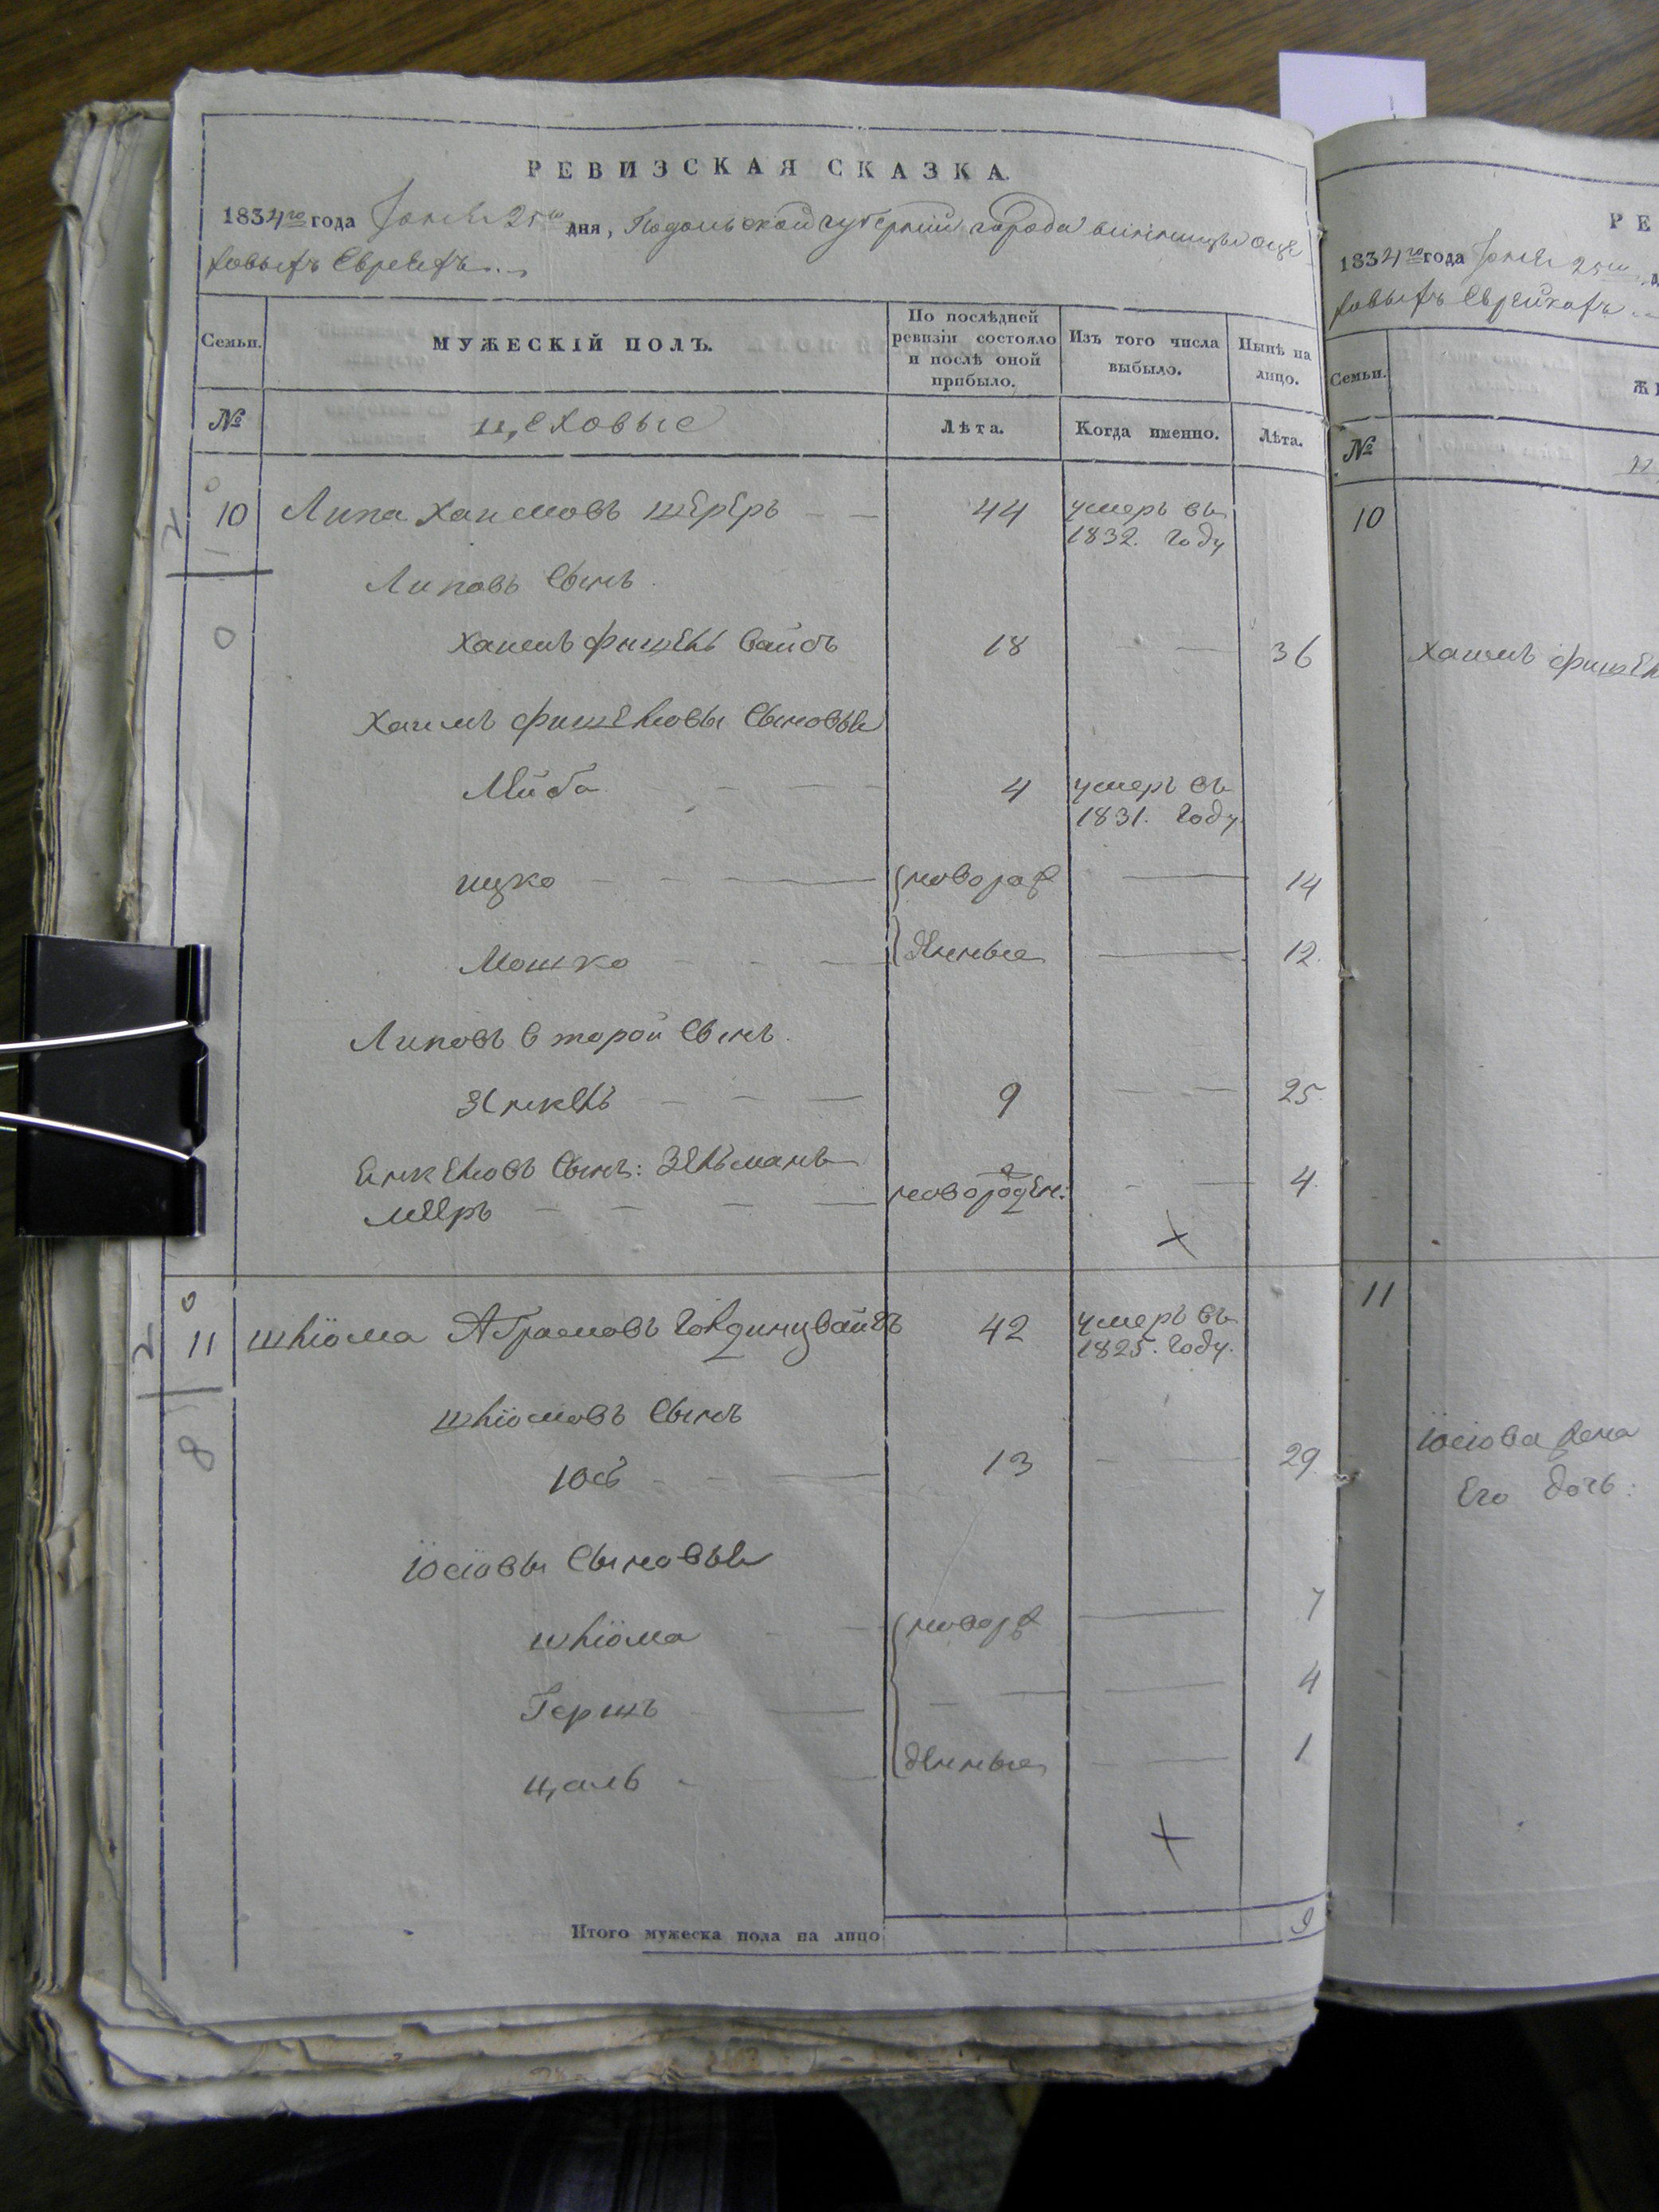 РЕВИЗСКАЯ СКАЗКА.
1834го года Іюня 25го дня, Подольской губерніи города винницы о цѣ
ховыхъ Евреяхъ.
Семьи.
МУЖЕСКІЙ ПОЛЪ.
По послѣдней ревизіи состояло и послѣ оной прибыло.
Изъ того числа выбыло.
Нынѣ на лицо.
№
цеховые
Лѣта.
Когда именно.
Лѣта.
10 Липа Хаимовъ шереръ 44 умеръ въ
1832. году
Липовъ Сынъ
Хаимъ фишель Вайсъ 18 36
Хаимъ фишелювы Сыновья
Лейба 4 умеръ въ
1831. году.
ицко новорож 14
Мошко денные 12.
Липовъ второй Сынъ.
Янкель 9 25.
Енкелювъ Сынъ: Зельманъ
мееръ новорожден: 4.
11 шлiома Абрамовъ 42 умеръ въ
1825. году.
шлiомовъ Сынъ
Юсь 13 29.
Юсiовы Сыновья
шлiома новорж 7
Гершъ 4
цаль денные 1
Итого мужеска пола на лицо 9
РЕ
1834го года Іюня 25го д
ховыхъ Еврейкахъ
Семьи.
Ж
№
ц
10
Хаимъ фишел
11
Юсiова жена
Его дочь:
2
10
0
2
8